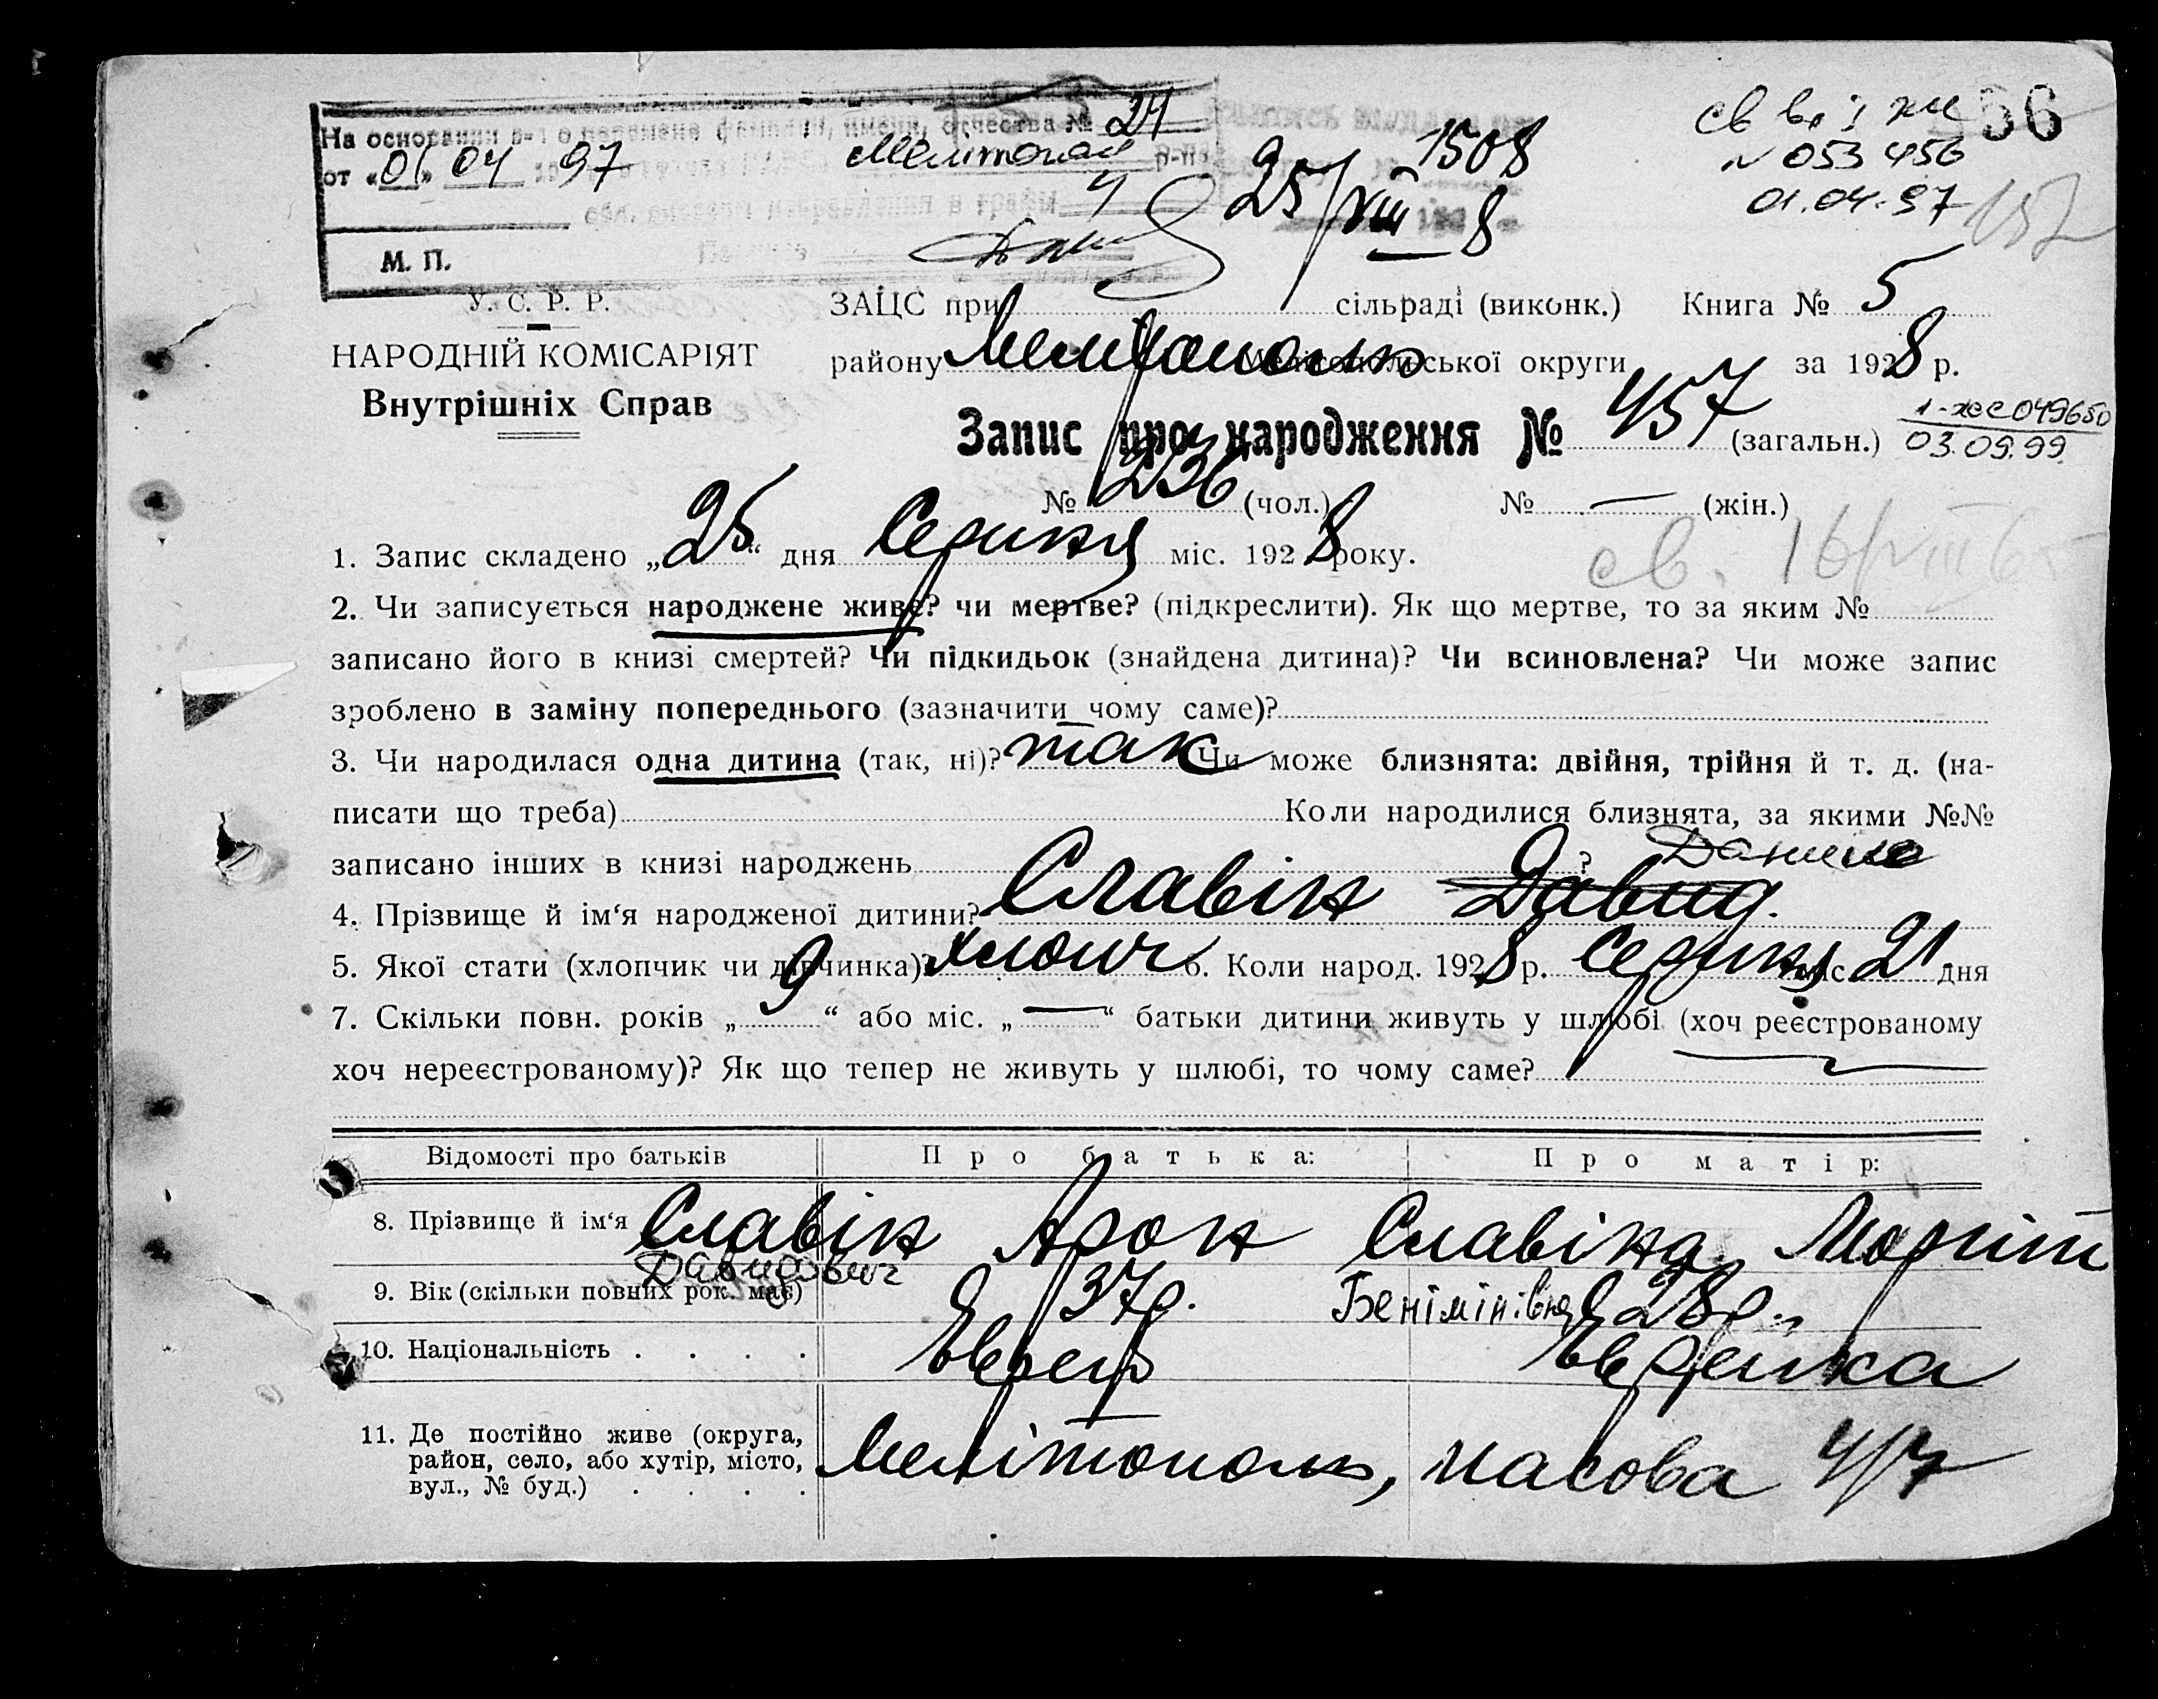 На основании в-ı о перемене фамилии, имени, отчества № 24
от «01» 04 97 Мелітополь р-н
4
М. П.
1508
25/VIII 8
св в. і жи
№ 053456
01.04.97
56
157
У. С. Р. Р.
НАРОДНІЙ КОМІСАРІЯТ
Внутрішніх Справ
ЗАЦС при сільраді (виконк.) Книга № 5
району Мелітополь Мелітопольської округи за 1928 р.
Запис про народження № 457 (загальн.)
1-жс 049650
03.09.99
№ 236 (чол.) № — (жін.)
св. 16/VIII 65
1. Запис складено „25“ дня Серпня міс. 1928 року.
2. Чи записується народжене живе? чи мертве? (підкреслити). Як що мертве, то за яким №
записано його в книзі смертей? Чи підкидьок (знайдена дитина)? Чи всиновлена? Чи може запис
зроблено в заміну попереднього (зазначити чому саме)?
3. Чи народилася одна дитина (так, ні)? так Чи може близнята: двійня, трійня й т. д. (на-
писати що треба) Коли народилися близнята, за якими №№
записано інших в книзі народжень ?
Данило
4. Прізвище й ім‘я народженої дитини? Славін Давид.
5. Якої статі (хлопчик чи дівчинка)? хлопч 6. Коли народ. 1928 р. Серпня міс 21 дня
7. Скільки повн. років „9“ або міс. „—“ батьки дитини живуть у шлюбі (хоч реєстрованому
хоч нереєстрованому)? Як що тепер не живуть у шлюбі, то чому саме?
Відомості про батьків Про батька: Про матір:
8. Прізвище й ім‘я Славін Арон Славіна
Давидович Бенімінівна
9. Вік (скільки повних рок. має) 37р. 28р.
10. Національність . . . . Єврей Єврейка
11. Де постійно живе (округа,
район, село, або хутір, місто,
вул., № буд.) . . . .
Мелітополь, Масова 4/7